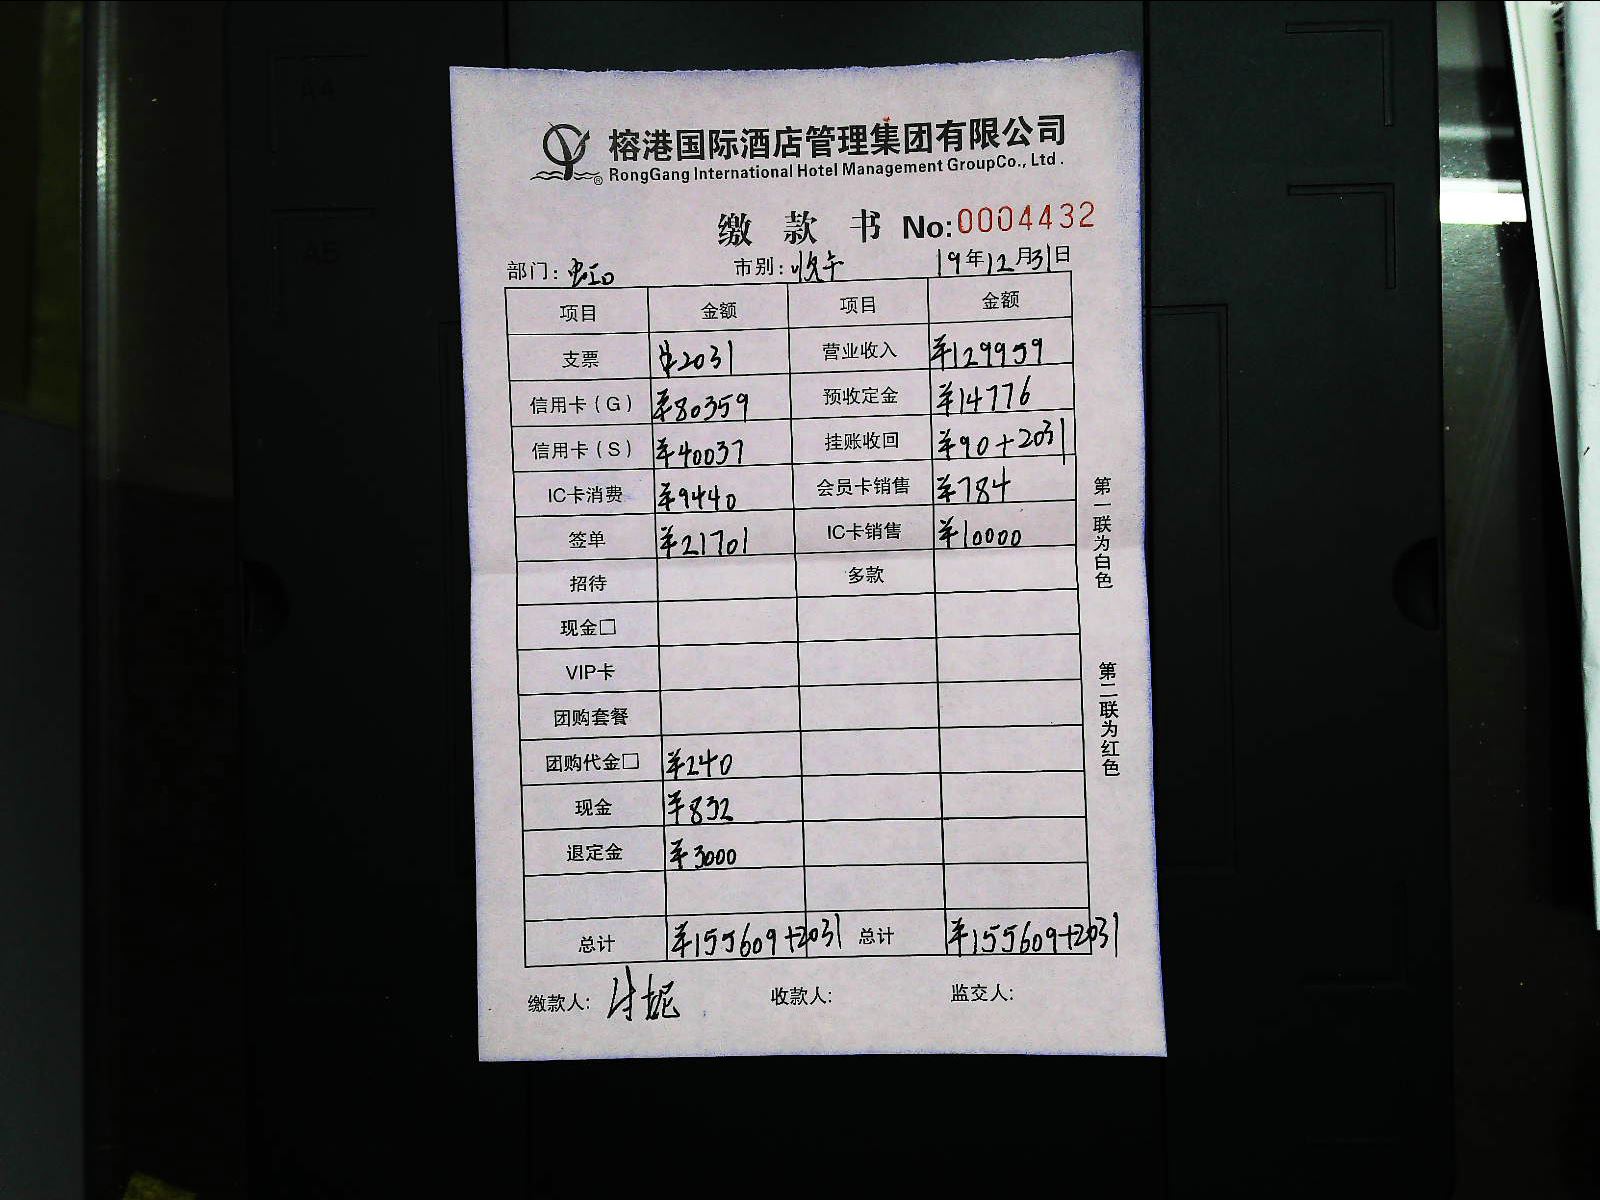 榕港国际酒店管理集团有限公司
RongGang International Hotel Management GroupCo., Ltd.
缴 款 书 No:0004432
部门: 虹 市别: 晚午 19年12月31日
项目 金额 项目 金额
支票 ¥2031 营业收入 ¥129959
信用卡(G) ¥80359 预收定金 ¥14776
信用卡(S) ¥40037 挂账收回 ¥90+2031
IC卡消费 ¥9440 会员卡销售 ¥784
签单 ¥21701 IC卡销售 ¥10000
招待 多款
现金□
VIP卡
团购套餐
团购代金□ ¥240
现金 ¥832
退定金 ¥3000
总计 ¥155609+2031 总计 ¥155609+2031
缴款人: 妮 收款人: 监交人:
第一联为白色
第二联为红色
A4
A5